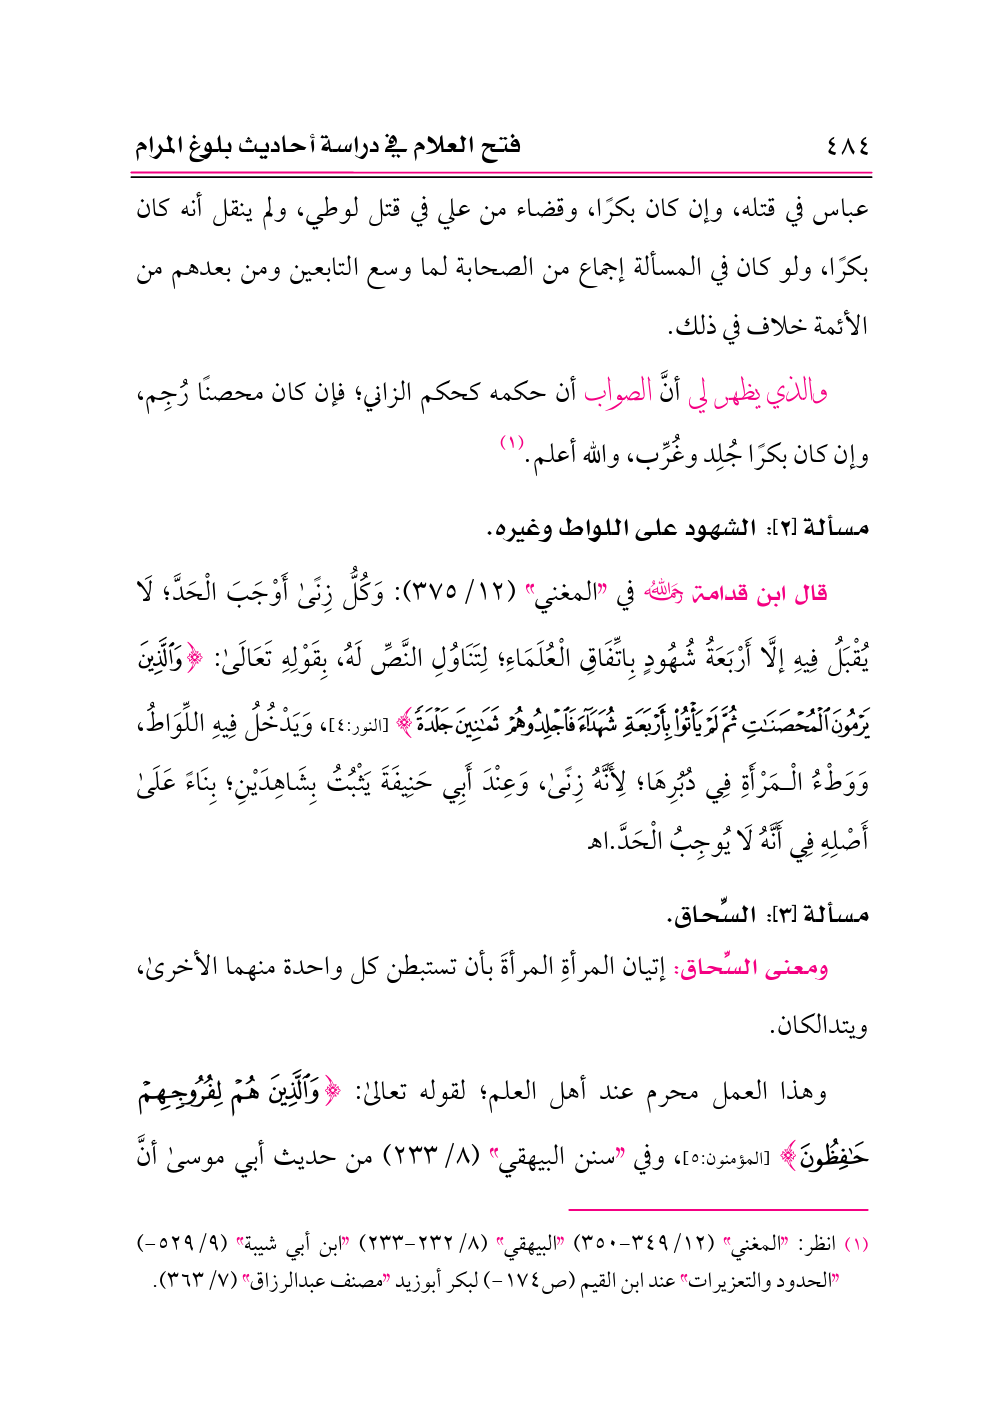 ٤٨٤ فتح العلام في دراسة أحاديث بلوغ المرام
عباس في قتله، وإن كان بكرًا، وقضاء من علي في قتل لوطي، ولم ينقل أنه كان
بكرًا، ولو كان في المسألة إجماع من الصحابة لما وسع التابعين ومن بعدهم من
الأئمة خلاف في ذلك.
والذي يظهر لي أنَّ الصواب أن حكمه كحكم الزاني؛ فإن كان محصنًا رُجِم،
وإن كان بكرًا جُلِد وغُرِّب، والله أعلم.(١)
مسألة [٢]: الشهود على اللواط وغيره.
قال ابن قدامة رَحِمَهُ اللهُ في "المغني" (١٢/ ٣٧٥): وَكُلُّ زِنًى أَوْجَبَ الْحَدَّ؛ لَا
يُقْبَلُ فِيهِ إلَّا أَرْبَعَةُ شُهُودٍ بِاتِّفَاقِ الْعُلَمَاءِ؛ لِتَنَاوُلِ النَّصِّ لَهُ، بِقَوْلِهِ تَعَالَىٰ: ﴿وَٱلَّذِينَ
يَرْمُونَ ٱلْمُحْصَنَـٰتِ ثُمَّ لَمْ يَأْتُوا۟ بِأَرْبَعَةِ شُهَدَآءَ فَٱجْلِدُوهُمْ ثَمَـٰنِينَ جَلْدَةً﴾ [النور:٤]، وَيَدْخُلُ فِيهِ اللِّوَاطُ،
وَوَطْءُ الْـمَرْأَةِ فِي دُبُرِهَا؛ لِأَنَّهُ زِنًى، وَعِنْدَ أَبِي حَنِيفَةَ يَثْبُتُ بِشَاهِدَيْنِ؛ بِنَاءً عَلَىٰ
أَصْلِهِ فِي أَنَّهُ لَا يُوجِبُ الْحَدَّ.اهـ
مسألة [٣]: السِّحاق.
ومعنى السِّحاق: إتيان المرأةِ المرأةَ بأن تستبطن كل واحدة منهما الأخرىٰ،
ويتدالكان.
وهذا العمل محرم عند أهل العلم؛ لقوله تعالىٰ: ﴿وَٱلَّذِينَ هُمْ لِفُرُوجِهِمْ
حَـٰفِظُونَ﴾ [المؤمنون:٥]، وفي "سنن البيهقي" (٨/ ٢٣٣) من حديث أبي موسىٰ أنَّ
(١) انظر: "المغني" (١٢/ ٣٤٩-٣٥٠) "البيهقي" (٨/ ٢٣٢-٢٣٣) "ابن أبي شيبة" (٩/ ٥٢٩-)
"الحدود والتعزيرات" عند ابن القيم (ص١٧٤-) لبكر أبوزيد "مصنف عبدالرزاق" (٧/ ٣٦٣).